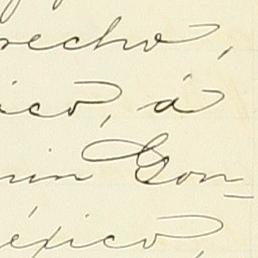 recho,
ico, á
min Gon-
éxico,